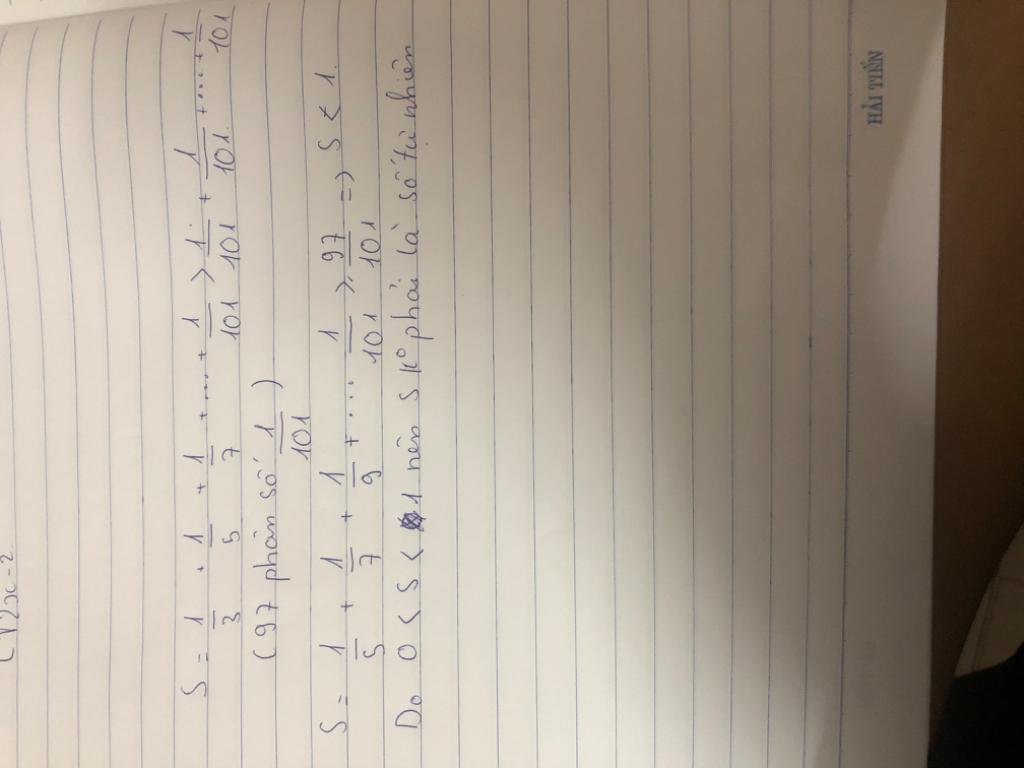 (√2x-2
S = 1/3 + 1/5 + 1/7 + .... + 1/101 > 1/101 + 1/101 + .... + 1/101
(97 phân số 1/101)
S = 1/5 + 1/7 + 1/9 + .... 1/101 > 97/101 => S < 1.
Do 0 < S < 1 nên S k° phải là số tự nhiên
HẢI TIẾN